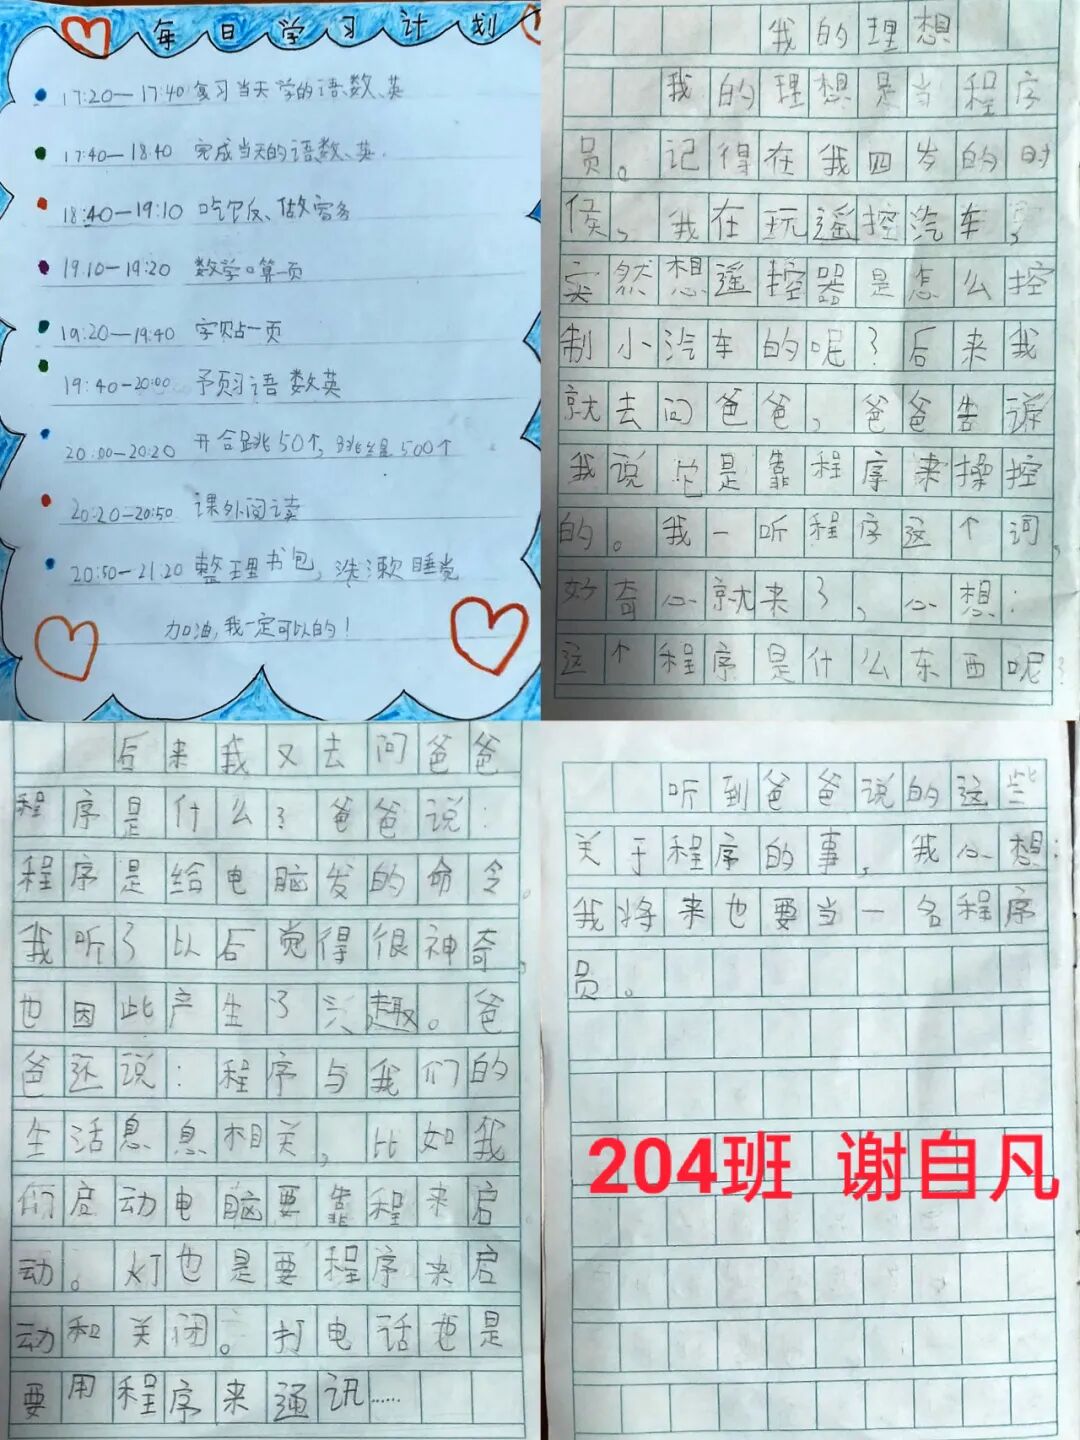 每日学习计划
17:20—17:40 复习当天学的语、数、英
17:40—18:40 完成当天的语、数、英.
18:40—19:10 吃饭、做家务
19:10—19:20 数学口算一页
19:20—19:40 字贴一页
19:40—20:00 予预习语数英
20:00—20:20 开合跳50个,跳绳500个
20:20—20:50 课外阅读
20:50—21:20 整理书包,洗漱睡觉
加油,我一定可以的!
我的理想
我的理想是当程序
员。记得在我四岁的时
候,我在玩遥控汽车,
突然想遥控器是怎么控
制小汽车的呢?后来我
就去问爸爸,爸爸告诉
我说它是靠程序来操控
的。我一听程序这个词,
好奇心就来了,心想:
这个程序是什么东西呢?
后来我又去问爸爸
程序是什么?爸爸说:
程序是给电脑发的命令。
我听了以后觉得很神奇,
也因此产生了兴趣。爸
爸还说:程序与我们的
生活息息相关,比如我
们启动电脑要靠程来启
动。灯也是要程序来启
动和关闭。打电话也是
要用程序来通讯……
听到爸爸说的这些
关于程序的事,我心想:
我将来也要当一名程序
员。
204班 谢自凡